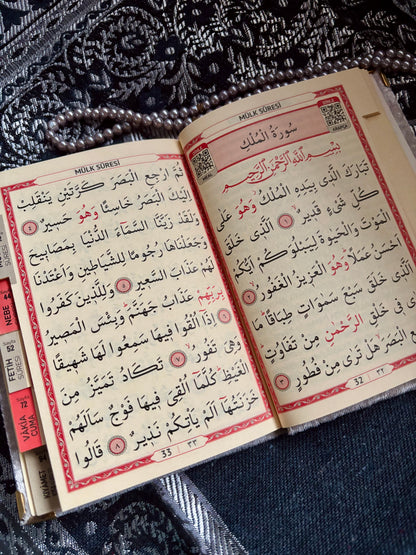 MÜLK SÛRESİ
سُورَةُ الْمُلْكِ
بِسْمِ اللّٰهِ الرَّحْمٰنِ الرَّحِيمِ
تَبَارَكَ الَّذِي بِيَدِهِ الْمُلْكُ وَهُوَ عَلٰى
كُلِّ شَيْءٍ قَدِيرٌ ﴿١﴾ اَلَّذِي خَلَقَ
الْمَوْتَ وَالْحَيٰوةَ لِيَبْلُوَكُمْ اَيُّكُمْ
اَحْسَنُ عَمَلًا وَهُوَ الْعَزِيزُ الْغَفُورُ ﴿٢﴾
اَلَّذِي خَلَقَ سَبْعَ سَمٰوَاتٍ طِبَاقًا مَا
تَرٰى فِي خَلْقِ الرَّحْمٰنِ مِنْ تَفَاوُتٍ
فَارْجِعِ الْبَصَرَ هَلْ تَرٰى مِنْ فُطُورٍ ﴿٣﴾
32 ٣٢
MÜLK SÛRESİ
ثُمَّ ارْجِعِ الْبَصَرَ كَرَّتَيْنِ يَنْقَلِبْ
اِلَيْكَ الْبَصَرُ خَاسِئًا وَهُوَ حَسِيرٌ ﴿٤﴾
وَلَقَدْ زَيَّنَّا السَّمَاءَ الدُّنْيَا بِمَصَابِيحَ
وَجَعَلْنَاهَا رُجُومًا لِلشَّيَاطِينِ وَاَعْتَدْنَا
لَهُمْ عَذَابَ السَّعِيرِ ﴿٥﴾ وَلِلَّذِينَ كَفَرُوا
بِرَبِّهِمْ عَذَابُ جَهَنَّمَ وَبِئْسَ الْمَصِيرُ
﴿٦﴾ اِذَا اُلْقُوا فِيهَا سَمِعُوا لَهَا شَهِيقًا
وَهِيَ تَفُورُ ﴿٧﴾ تَكَادُ تَمَيَّزُ مِنَ
الْغَيْظِ كُلَّمَا اُلْقِيَ فِيهَا فَوْجٌ سَاَلَهُمْ
خَزَنَتُهَا اَلَمْ يَأْتِكُمْ نَذِيرٌ ﴿٨﴾ قَالُوا
33 ٣٣
SÛRESİ
NEBE
FETİH
SÛRESİ
VAKIA
CUMA
KIYAMET